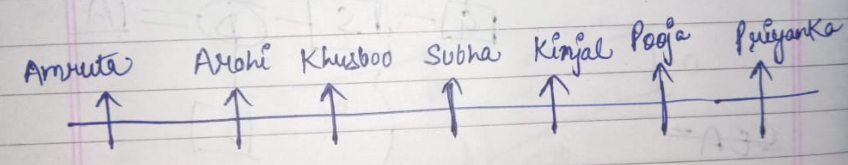 Amruta Arohi Khusboo Subha Kinjal Pooja Priyanka